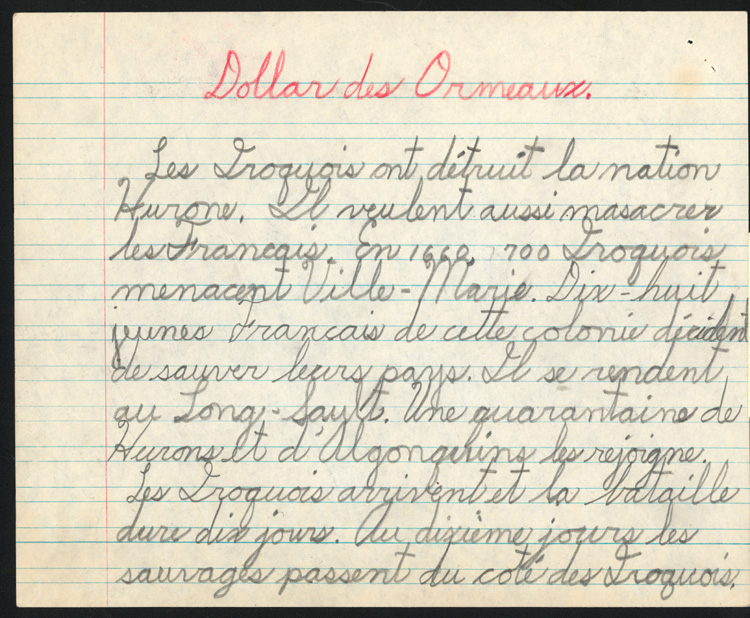 Dollar des Ormeaux.
Les Iroquois ont détruit la nation
Hurone. Il veulent aussi masacrer
les Francais. En 1660, 700 Iroquois
menacent Ville-Marie. Dix-huit
jeunes Francais de cette colonie décident
de sauver leurs pays. Il se rendent
au Long-Sault. Une quarantaine de
Hurons et d'Algonquins les rejoigne.
Les Iroquois arrivent et la bataille
dure dix jours. Au dixième jours les
sauvages passent du coté des Iroquois.